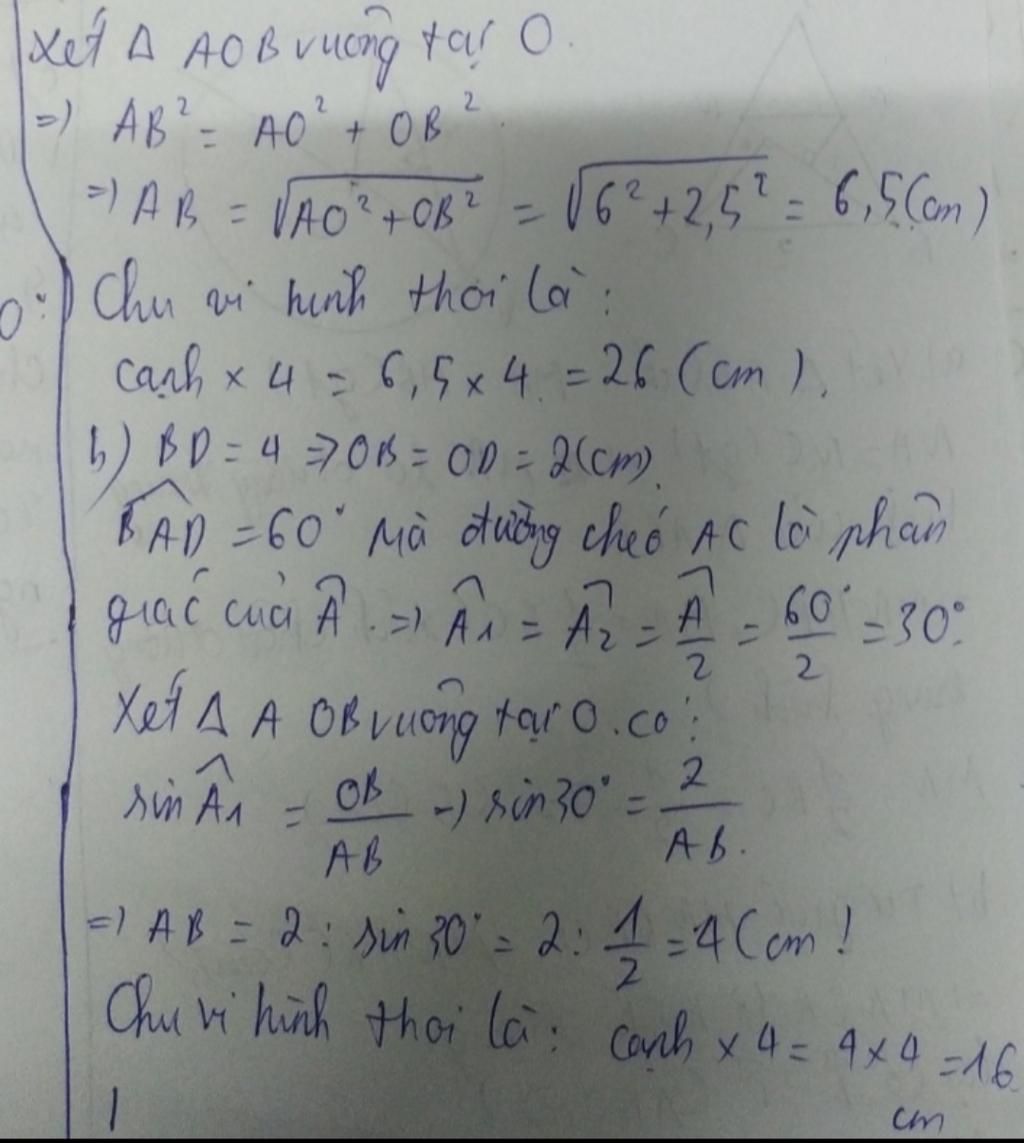 Xét Δ AOB vuông tại O.
=> AB² = AO² + OB²
=> AB = √AO²+OB² = √6²+2,5² = 6,5(cm)
Chu vi hình thoi là:
cạnh × 4 = 6,5 × 4 = 26 (cm).
b) BD = 4 => OB = OD = 2(cm).
BAD = 60° Mà đường chéo AC là phân
giác của Â. => Â1 = Â2 = Â/2 = 60°/2 = 30°.
Xét Δ AOB vuông tại O. có:
sin Â1 = OB/AB => sin30° = 2/AB.
=> AB = 2 : sin 30° = 2 : 1/2 = 4 (cm!
Chu vi hình thoi là: cạnh × 4 = 4×4 = 16
cm